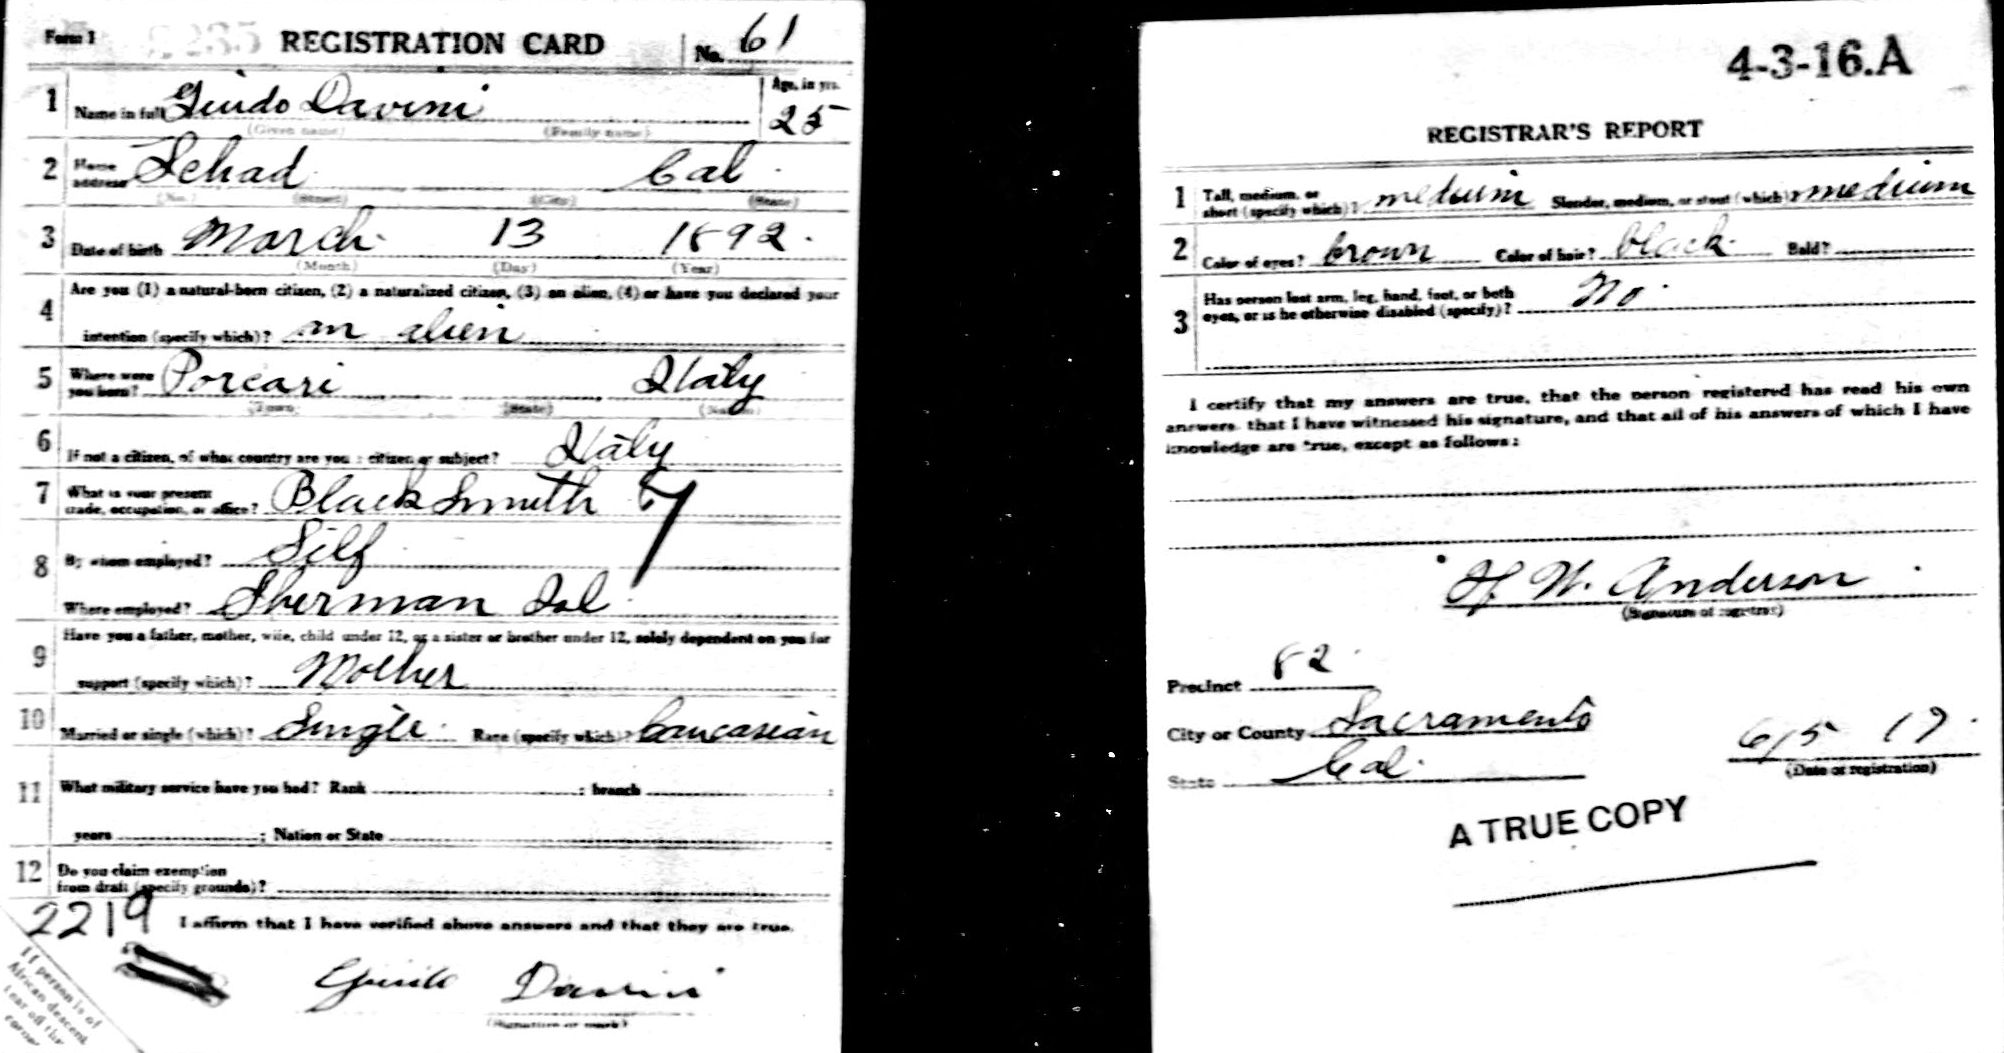 Form 1 2235 REGISTRATION CARD No. 61
1 Name in full Guido Davini Age, in yrs. 25
(Given name) (Family name)
2 Home address Sehad Cal.
(No.) (Street) (City) (State)
3 Date of birth March 13 1892.
(Month) (Day) (Year)
4 Are you (1) a natural-born citizen, (2) a naturalized citizen, (3) an alien, (4) or have you declared your
intention (specify which)? an alien
5 Where were you born? Porcari Italy
(Town) (State) (Nation)
6 If not a citizen, of what country are you a citizen or subject? Italy
7 What is your present trade, occupation, or office? Blacksmith 7
8 By whom employed? Self
Where employed? Sherman Isl
9 Have you a father, mother, wife, child under 12, or a sister or brother under 12, solely dependent on you for
support (specify which)? Mother
10 Married or single (which)? Single. Race (specify which)? Caucasian
11 What military service have you had? Rank ; branch ;
years ; Nation or State
12 Do you claim exemption
from draft (specify grounds)?
2219 I affirm that I have verified above answers and that they are true.
Guido Davini
(Signature or mark)
If person is of
African descent
tear off this
corner
4-3-16.A
REGISTRAR'S REPORT
1 Tall, medium, or short (specify which)? medium Slender, medium, or stout (which)? medium
2 Color of eyes? brown Color of hair? black. Bald?
3 Has person lost arm, leg, hand, foot, or both
eyes, or is he otherwise disabled (specify)? No.
I certify that my answers are true, that the person registered has read his own
answers, that I have witnessed his signature, and that all of his answers of which I have
knowledge are true, except as follows:
H. W. Anderson
(Signature of registrar)
Precinct 82
City or County Sacramento
State Cal. 6/5 17.
(Date of registration)
A TRUE COPY